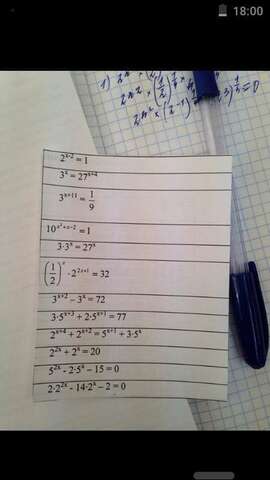 18:00
2^{x-2} = 1
3^x = 27^{x+4}
3^{x+11} = \frac{1}{9}
10^{x^2+x-2} = 1
3·3^x = 27^x
(\frac{1}{2})^x · 2^{2x+1} = 32
3^{x+2} – 3^x = 72
3·5^{x+3} + 2·5^{x+1} = 77
2^{x+4} + 2^{x+2} = 5^{x+1} + 3·5^x
2^{2x} + 2^x = 20
5^{2x} - 2·5^x – 15 = 0
2·2^{2x} - 14·2^x – 2 = 0